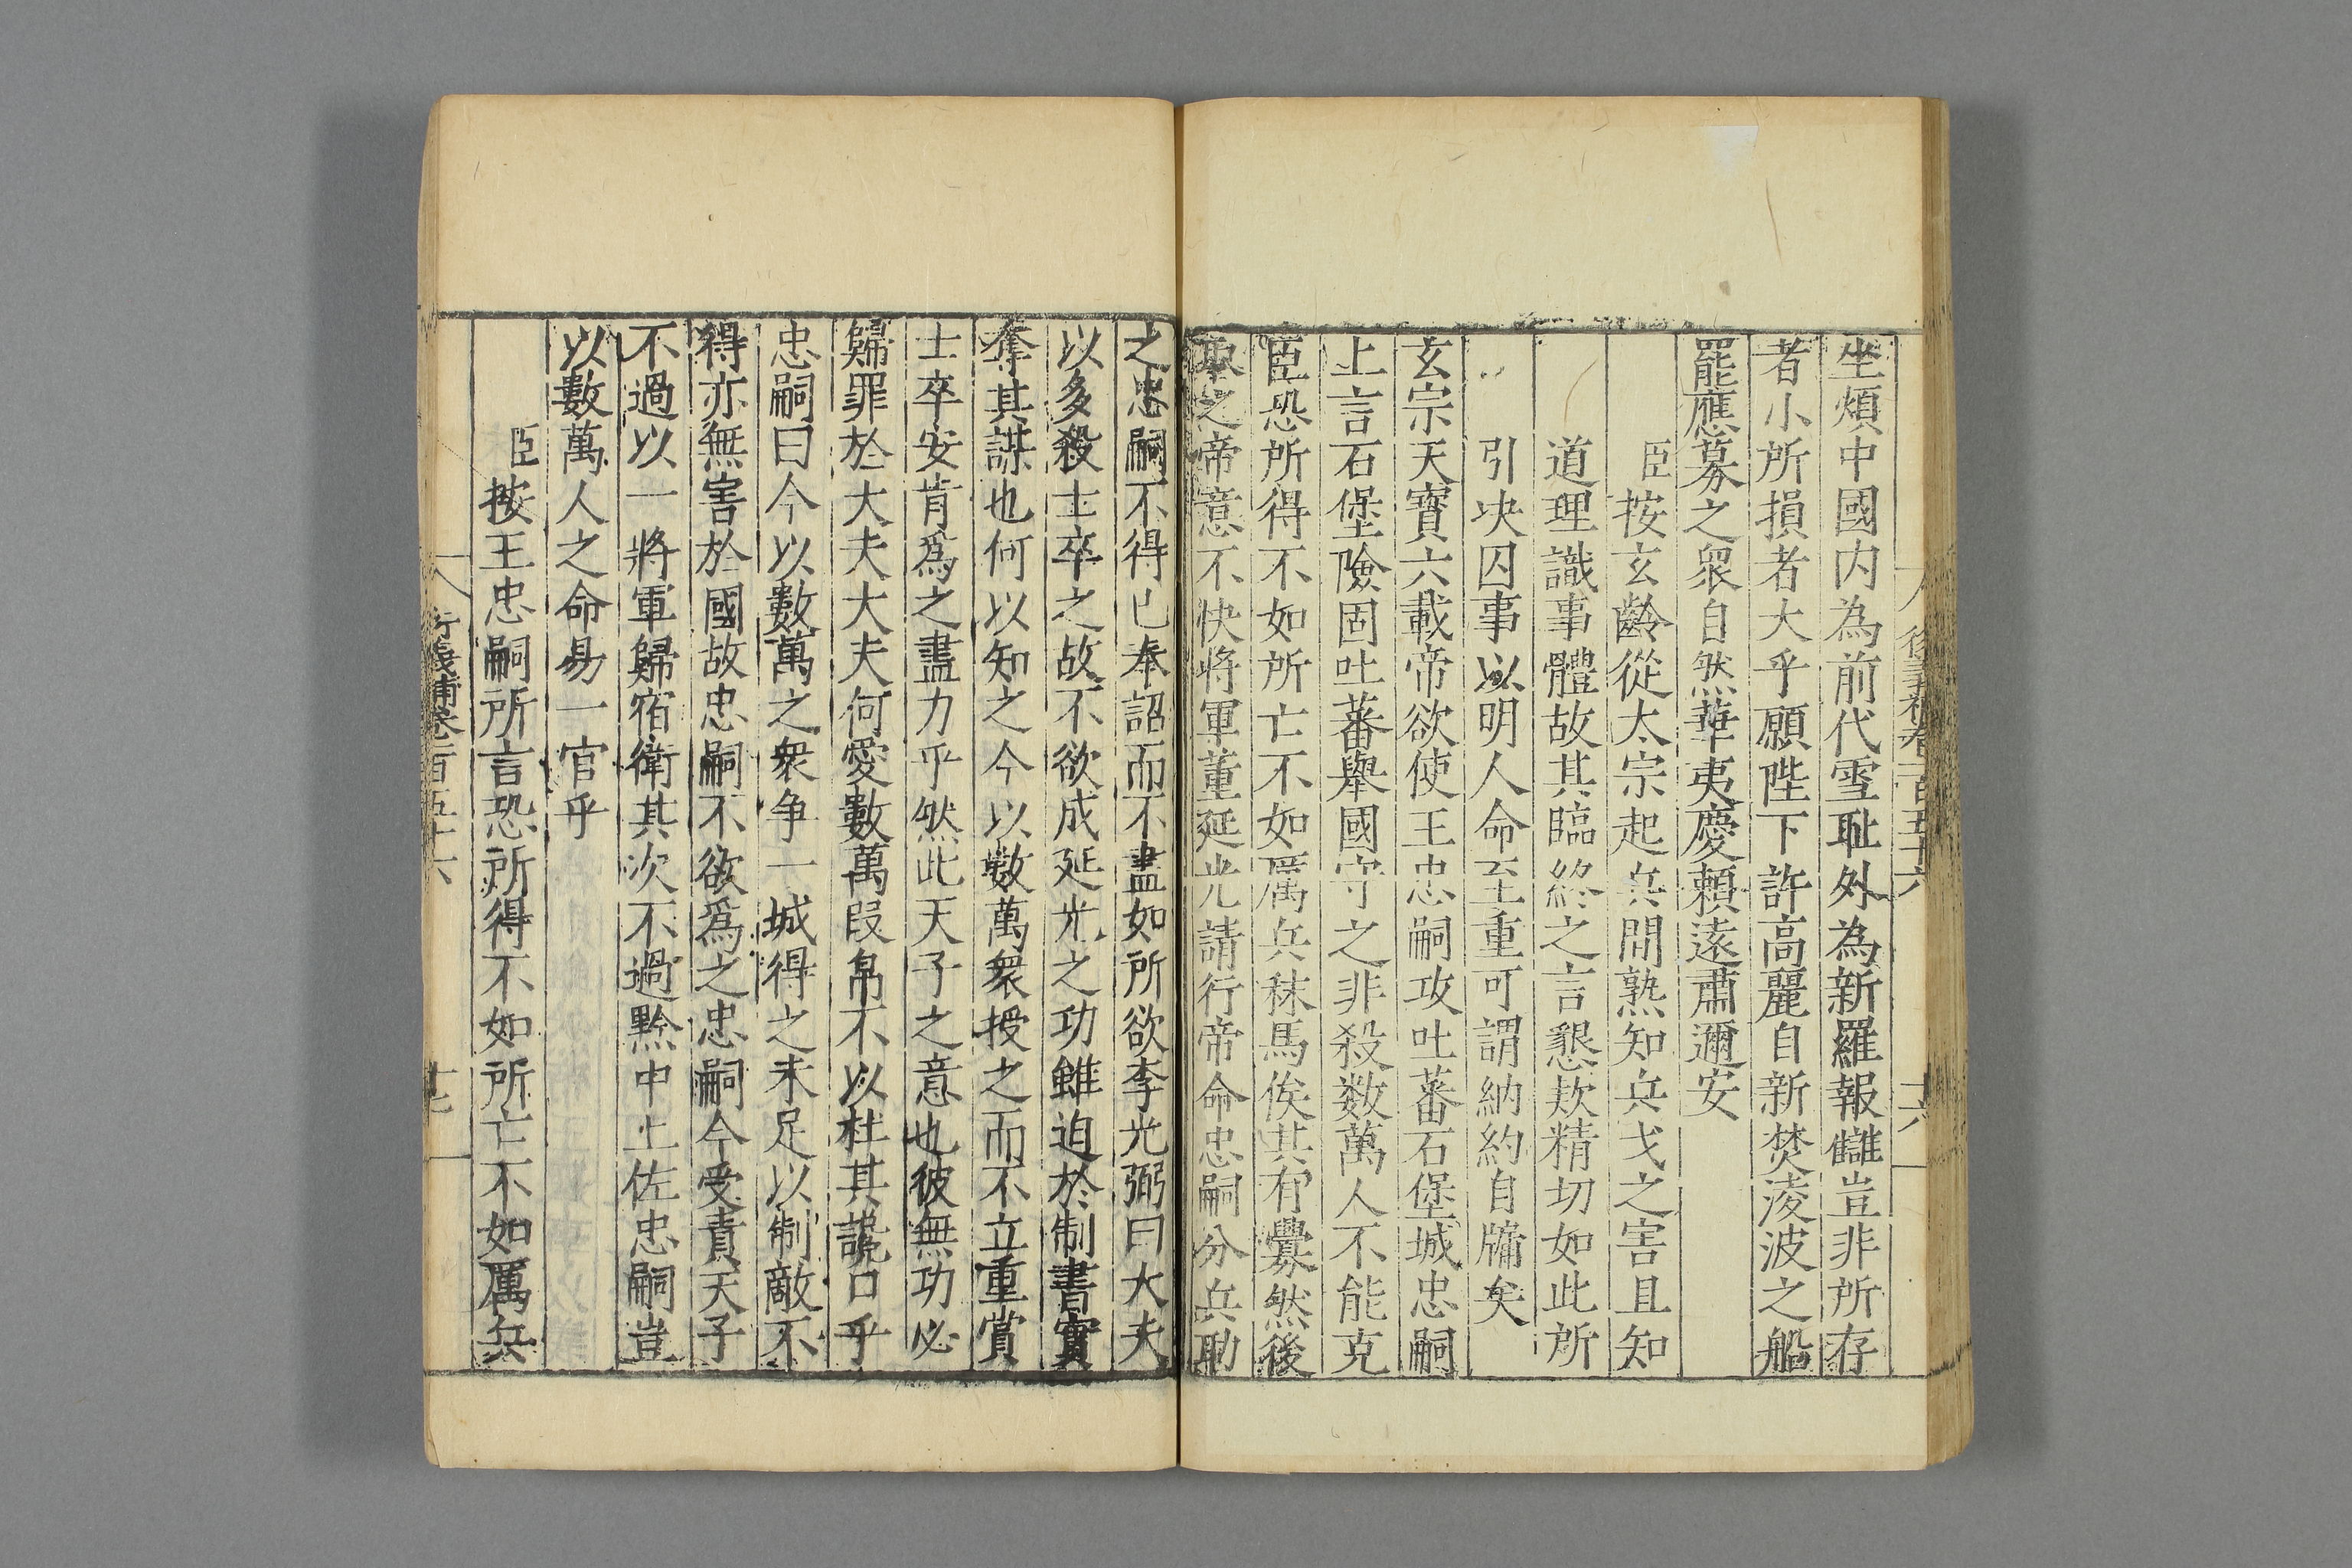 衍義補卷一百五十六 十六
坐煩中國内為前代雪耻外為新羅報讎豈非所存
者小所損者大乎願陛下許高麗自新焚淩波之船
罷應募之衆自然華夷慶賴遠肅邇安
臣按玄齡從太宗起兵間熟知兵戈之害且知
道理識事體故其臨終之言懇欵精切如此所
引决囚事以明人命至重可謂納約自牖矣
玄宗天寶六載帝欲使王忠嗣攻吐蕃石堡城忠嗣
上言石堡險固吐蕃舉國守之非殺数萬人不能克
臣恐所得不如所亡不如厲兵秣馬俟其有釁然後
取之帝意不快将軍董延光請行帝命忠嗣分兵助
之忠嗣不得已奉詔而不盡如所欲李光弼曰大夫
以多殺士卒之故不欲成延光之功雖迫於制書實
奪其謀也何以知之今以數萬衆授之而不立重賞
士卒安肯爲之盡力乎然此天子之意也彼無功必
歸罪於大夫大夫何愛數萬叚帛不以杜其讒口乎
忠嗣曰今以數萬之衆争一城得之未足以制敵不
得亦無害於國故忠嗣不欲爲之忠嗣今受責天子
不過以一將軍歸宿衛其次不過黔中上佐忠嗣豈
以數萬人之命易一官乎
臣按王忠嗣所言恐所得不如所亡不如厲兵
衍義補卷一百五十六 十七